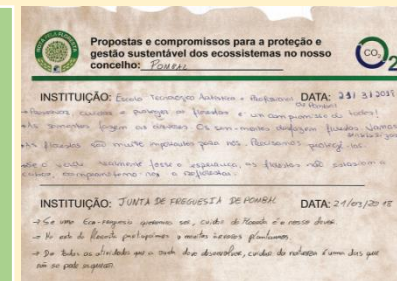 Propostas e compromissos para a proteção e
gestão sustentável dos ecossistemas no nosso
concelho: POMBAL
CO2
INSTITUIÇÃO: Escola Tecnológica Artística e Profissional de Pombal DATA: 21/3/2018
e proteger as florestas é um compromisso de todos!
As sementes fazem as árvores. Os
As florestas são muito importantes para nós. Precisamos
Se o verde realmente fosse a esperança, as florestas não estariam a
INSTITUIÇÃO: JUNTA DE FREGUESIA DE POMBAL DATA: 21/03/2018
→ Se uma Eco-Freguesia queremos ser, cuidar da floresta é o nosso dever.
→ No ato da floresta participamos e muitas árvores plantamos.
→ De todas as atividades que se pode desenvolver, cuidar da natureza é uma das que
não se pode esquecer.